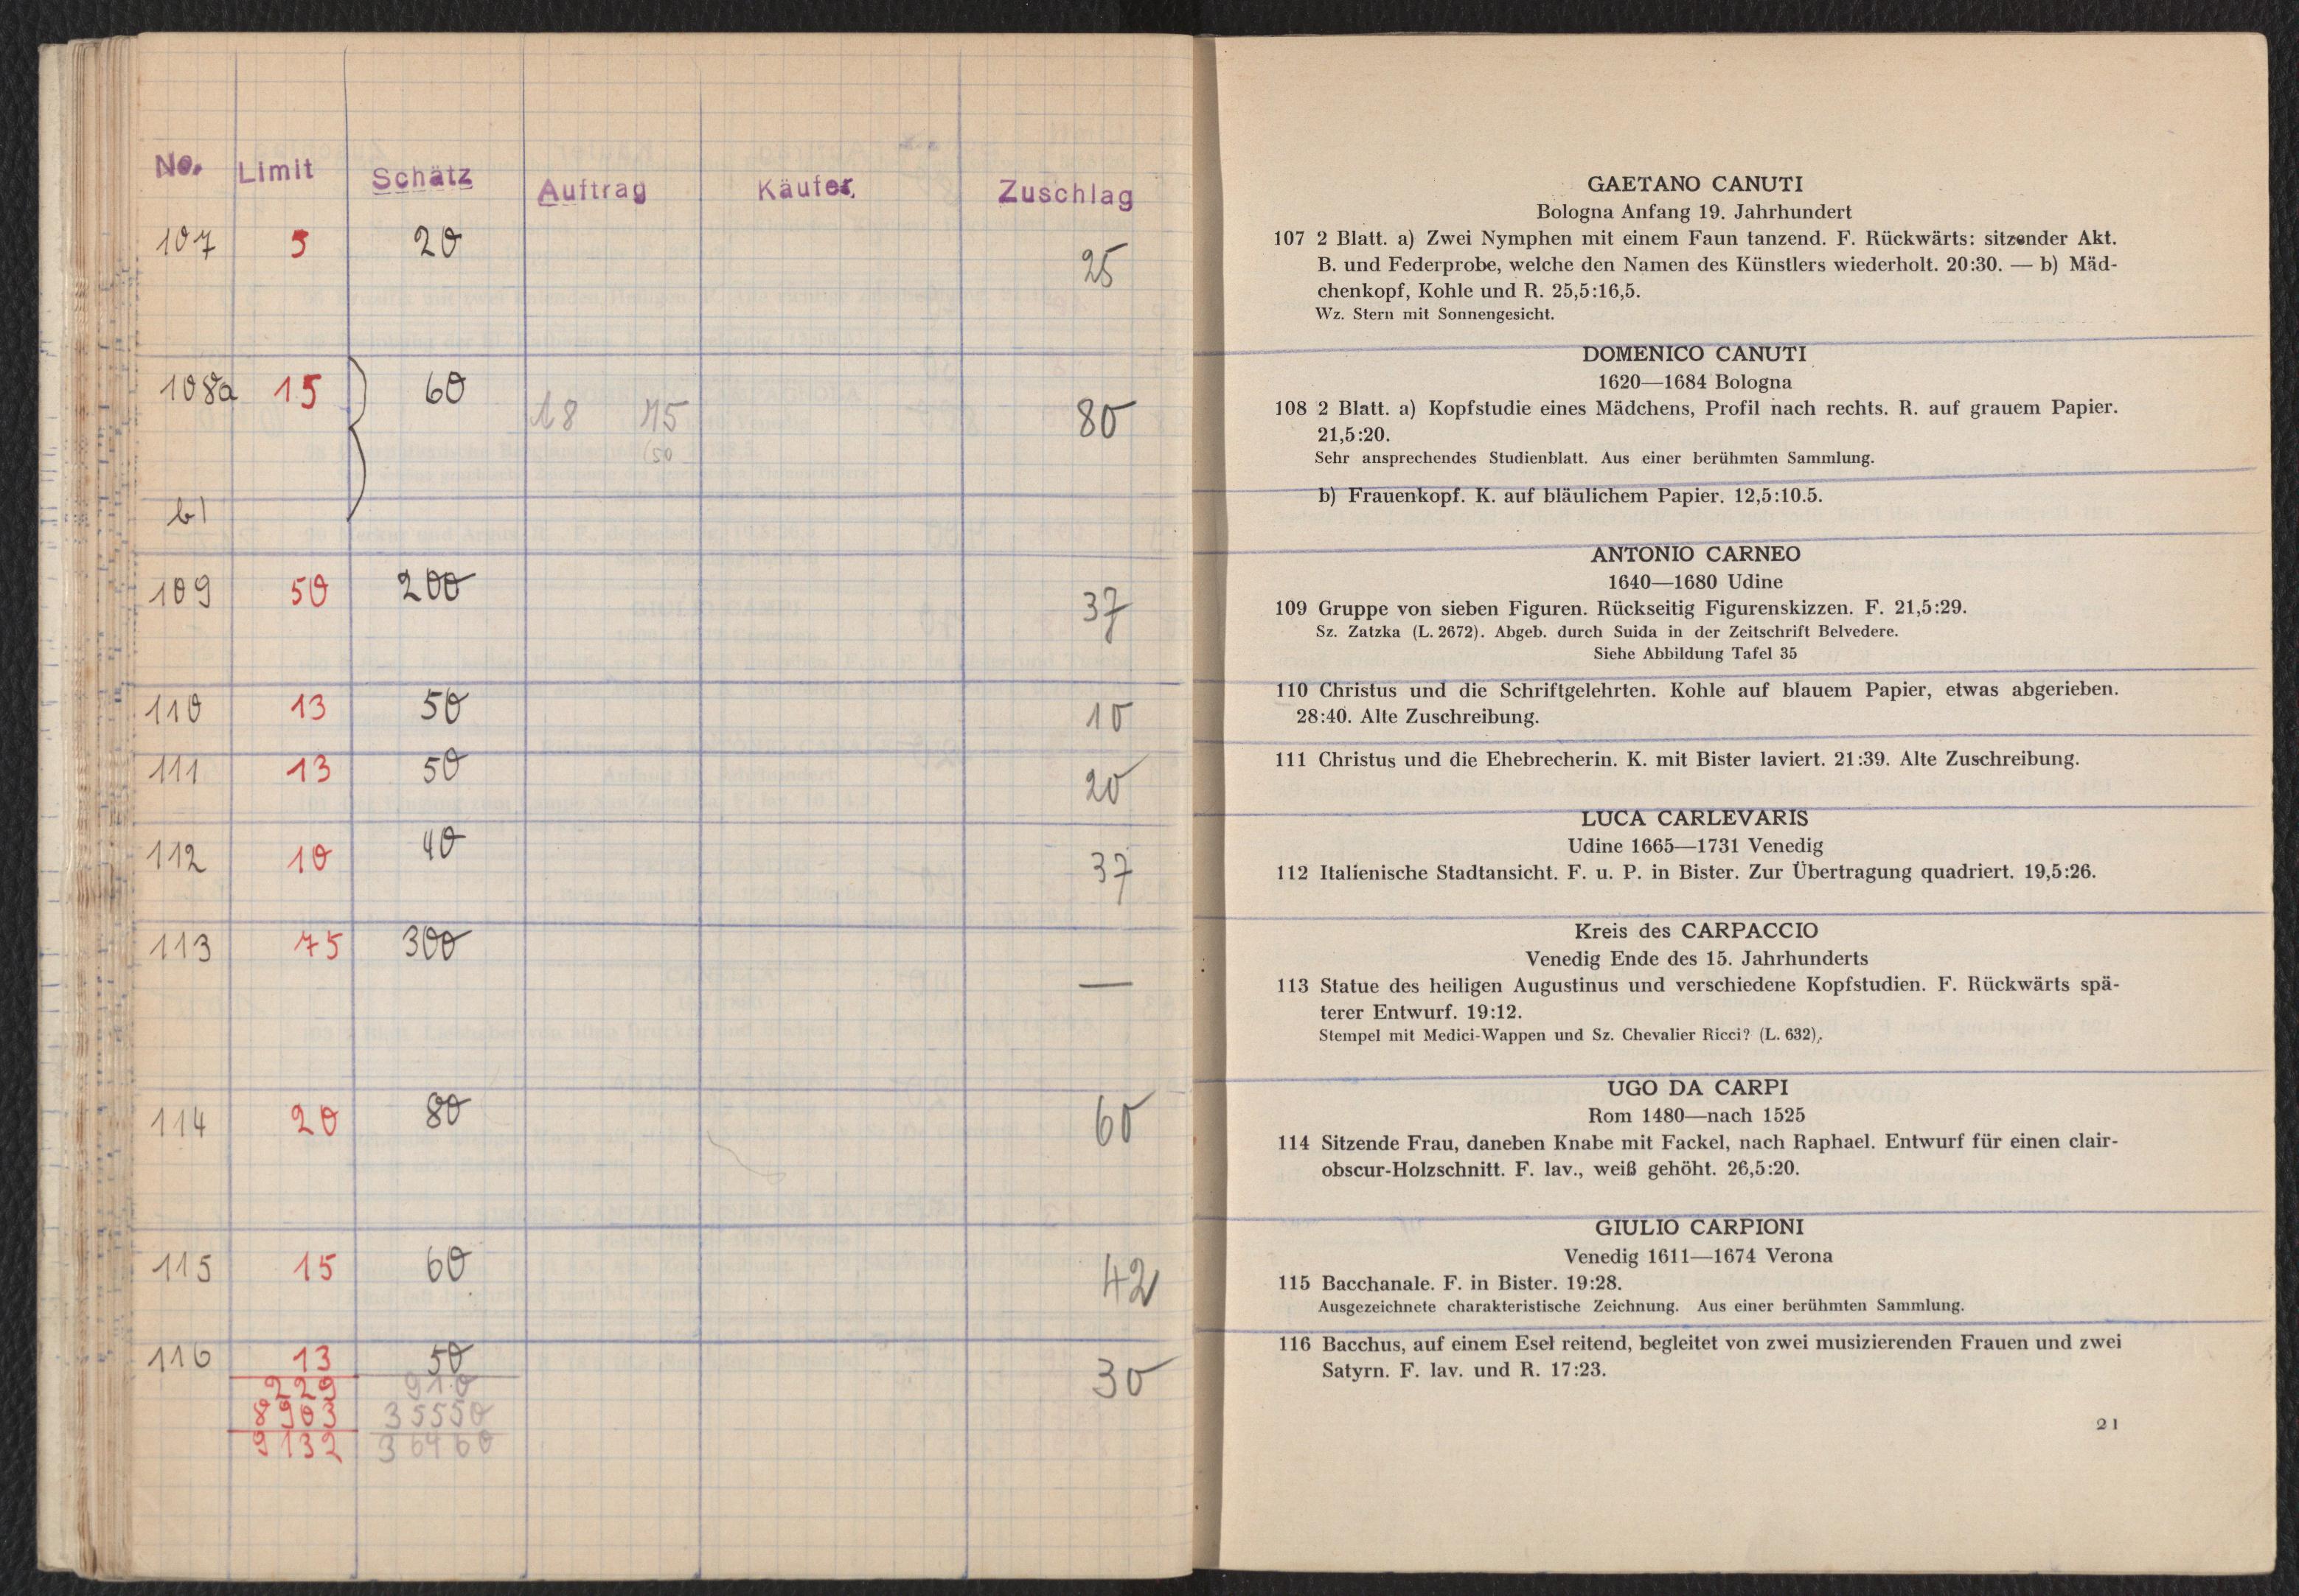 No. Limit Schätz Auftrag Käufer Zuschlag
107 5 20 25
108a 15 60 18 75 80
(50
b)
109 50 200 37
110 13 50 10
111 13 50 20
112 10 40 37
113 75 300 —
114 20 80 60
115 15 60 42
116 13 50 30
229 910
8903 35550
9132 36460
GAETANO CANUTI
Bologna Anfang 19. Jahrhundert
107 2 Blatt. a) Zwei Nymphen mit einem Faun tanzend. F. Rückwärts: sitzender Akt.
B. und Federprobe, welche den Namen des Künstlers wiederholt. 20:30. — b) Mäd-
chenkopf, Kohle und R. 25,5:16,5.
Wz. Stern mit Sonnengesicht.
DOMENICO CANUTI
1620—1684 Bologna
108 2 Blatt. a) Kopfstudie eines Mädchens, Profil nach rechts. R. auf grauem Papier.
21,5:20.
Sehr ansprechendes Studienblatt. Aus einer berühmten Sammlung.
b) Frauenkopf. K. auf bläulichem Papier. 12,5:10.5.
ANTONIO CARNEO
1640—1680 Udine
109 Gruppe von sieben Figuren. Rückseitig Figurenskizzen. F. 21,5:29.
Sz. Zatzka (L. 2672). Abgeb. durch Suida in der Zeitschrift Belvedere.
Siehe Abbildung Tafel 35
110 Christus und die Schriftgelehrten. Kohle auf blauem Papier, etwas abgerieben.
28:40. Alte Zuschreibung.
111 Christus und die Ehebrecherin. K. mit Bister laviert. 21:39. Alte Zuschreibung.
LUCA CARLEVARIS
Udine 1665—1731 Venedig
112 Italienische Stadtansicht. F. u. P. in Bister. Zur Übertragung quadriert. 19,5:26.
Kreis des CARPACCIO
Venedig Ende des 15. Jahrhunderts
113 Statue des heiligen Augustinus und verschiedene Kopfstudien. F. Rückwärts spä-
terer Entwurf. 19:12.
Stempel mit Medici-Wappen und Sz. Chevalier Ricci? (L. 632).
UGO DA CARPI
Rom 1480—nach 1525
114 Sitzende Frau, daneben Knabe mit Fackel, nach Raphael. Entwurf für einen clair-
obscur-Holzschnitt. F. lav., weiß gehöht. 26,5:20.
GIULIO CARPIONI
Venedig 1611—1674 Verona
115 Bacchanale. F. in Bister. 19:28.
Ausgezeichnete charakteristische Zeichnung. Aus einer berühmten Sammlung.
116 Bacchus, auf einem Esel reitend, begleitet von zwei musizierenden Frauen und zwei
Satyrn. F. lav. und R. 17:23.
21